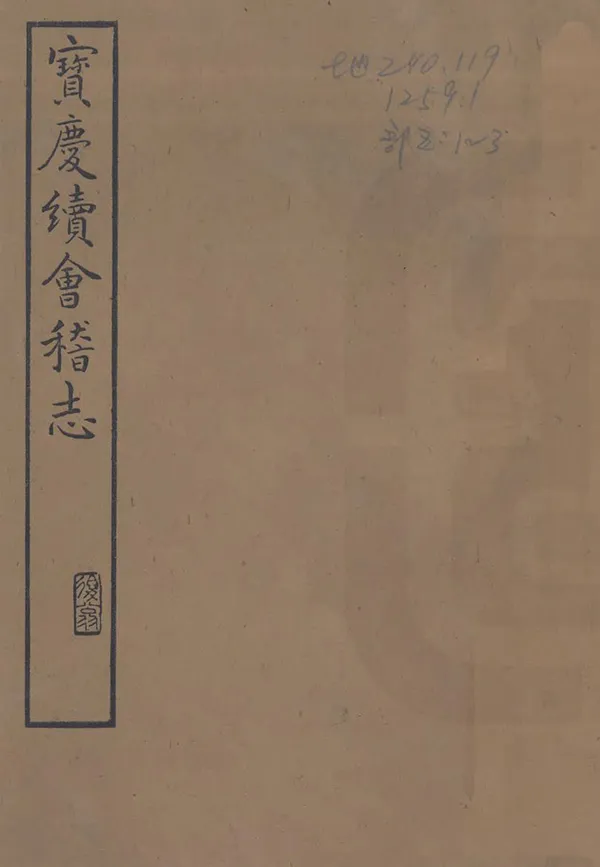 寶慶續會稽志
地240.119
1259.1
部五:1~3